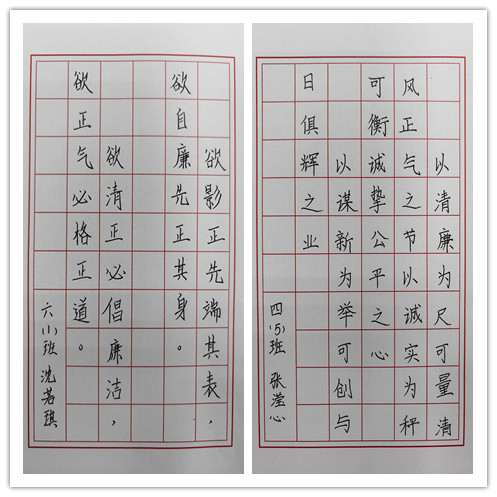 欲影正先端其表，
欲自廉先正其身。
欲清正必倡廉洁，
欲正气必格正道。
六(1)班 沈若琪
以清廉为尺可量清
风正气之节以诚实为秤
可衡诚挚公平之心
以谋新为举可创与
日俱辉之业
四(5)班 张滢心